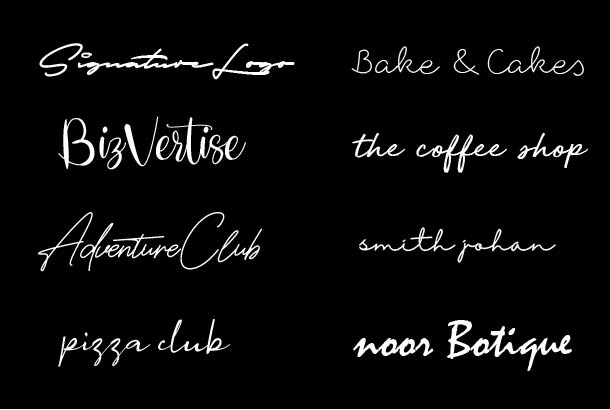 Signature Logo
Bake & Cakes
BizVertise
the coffee shop
AdventureClub
smith johan
pizza club
noor Botique